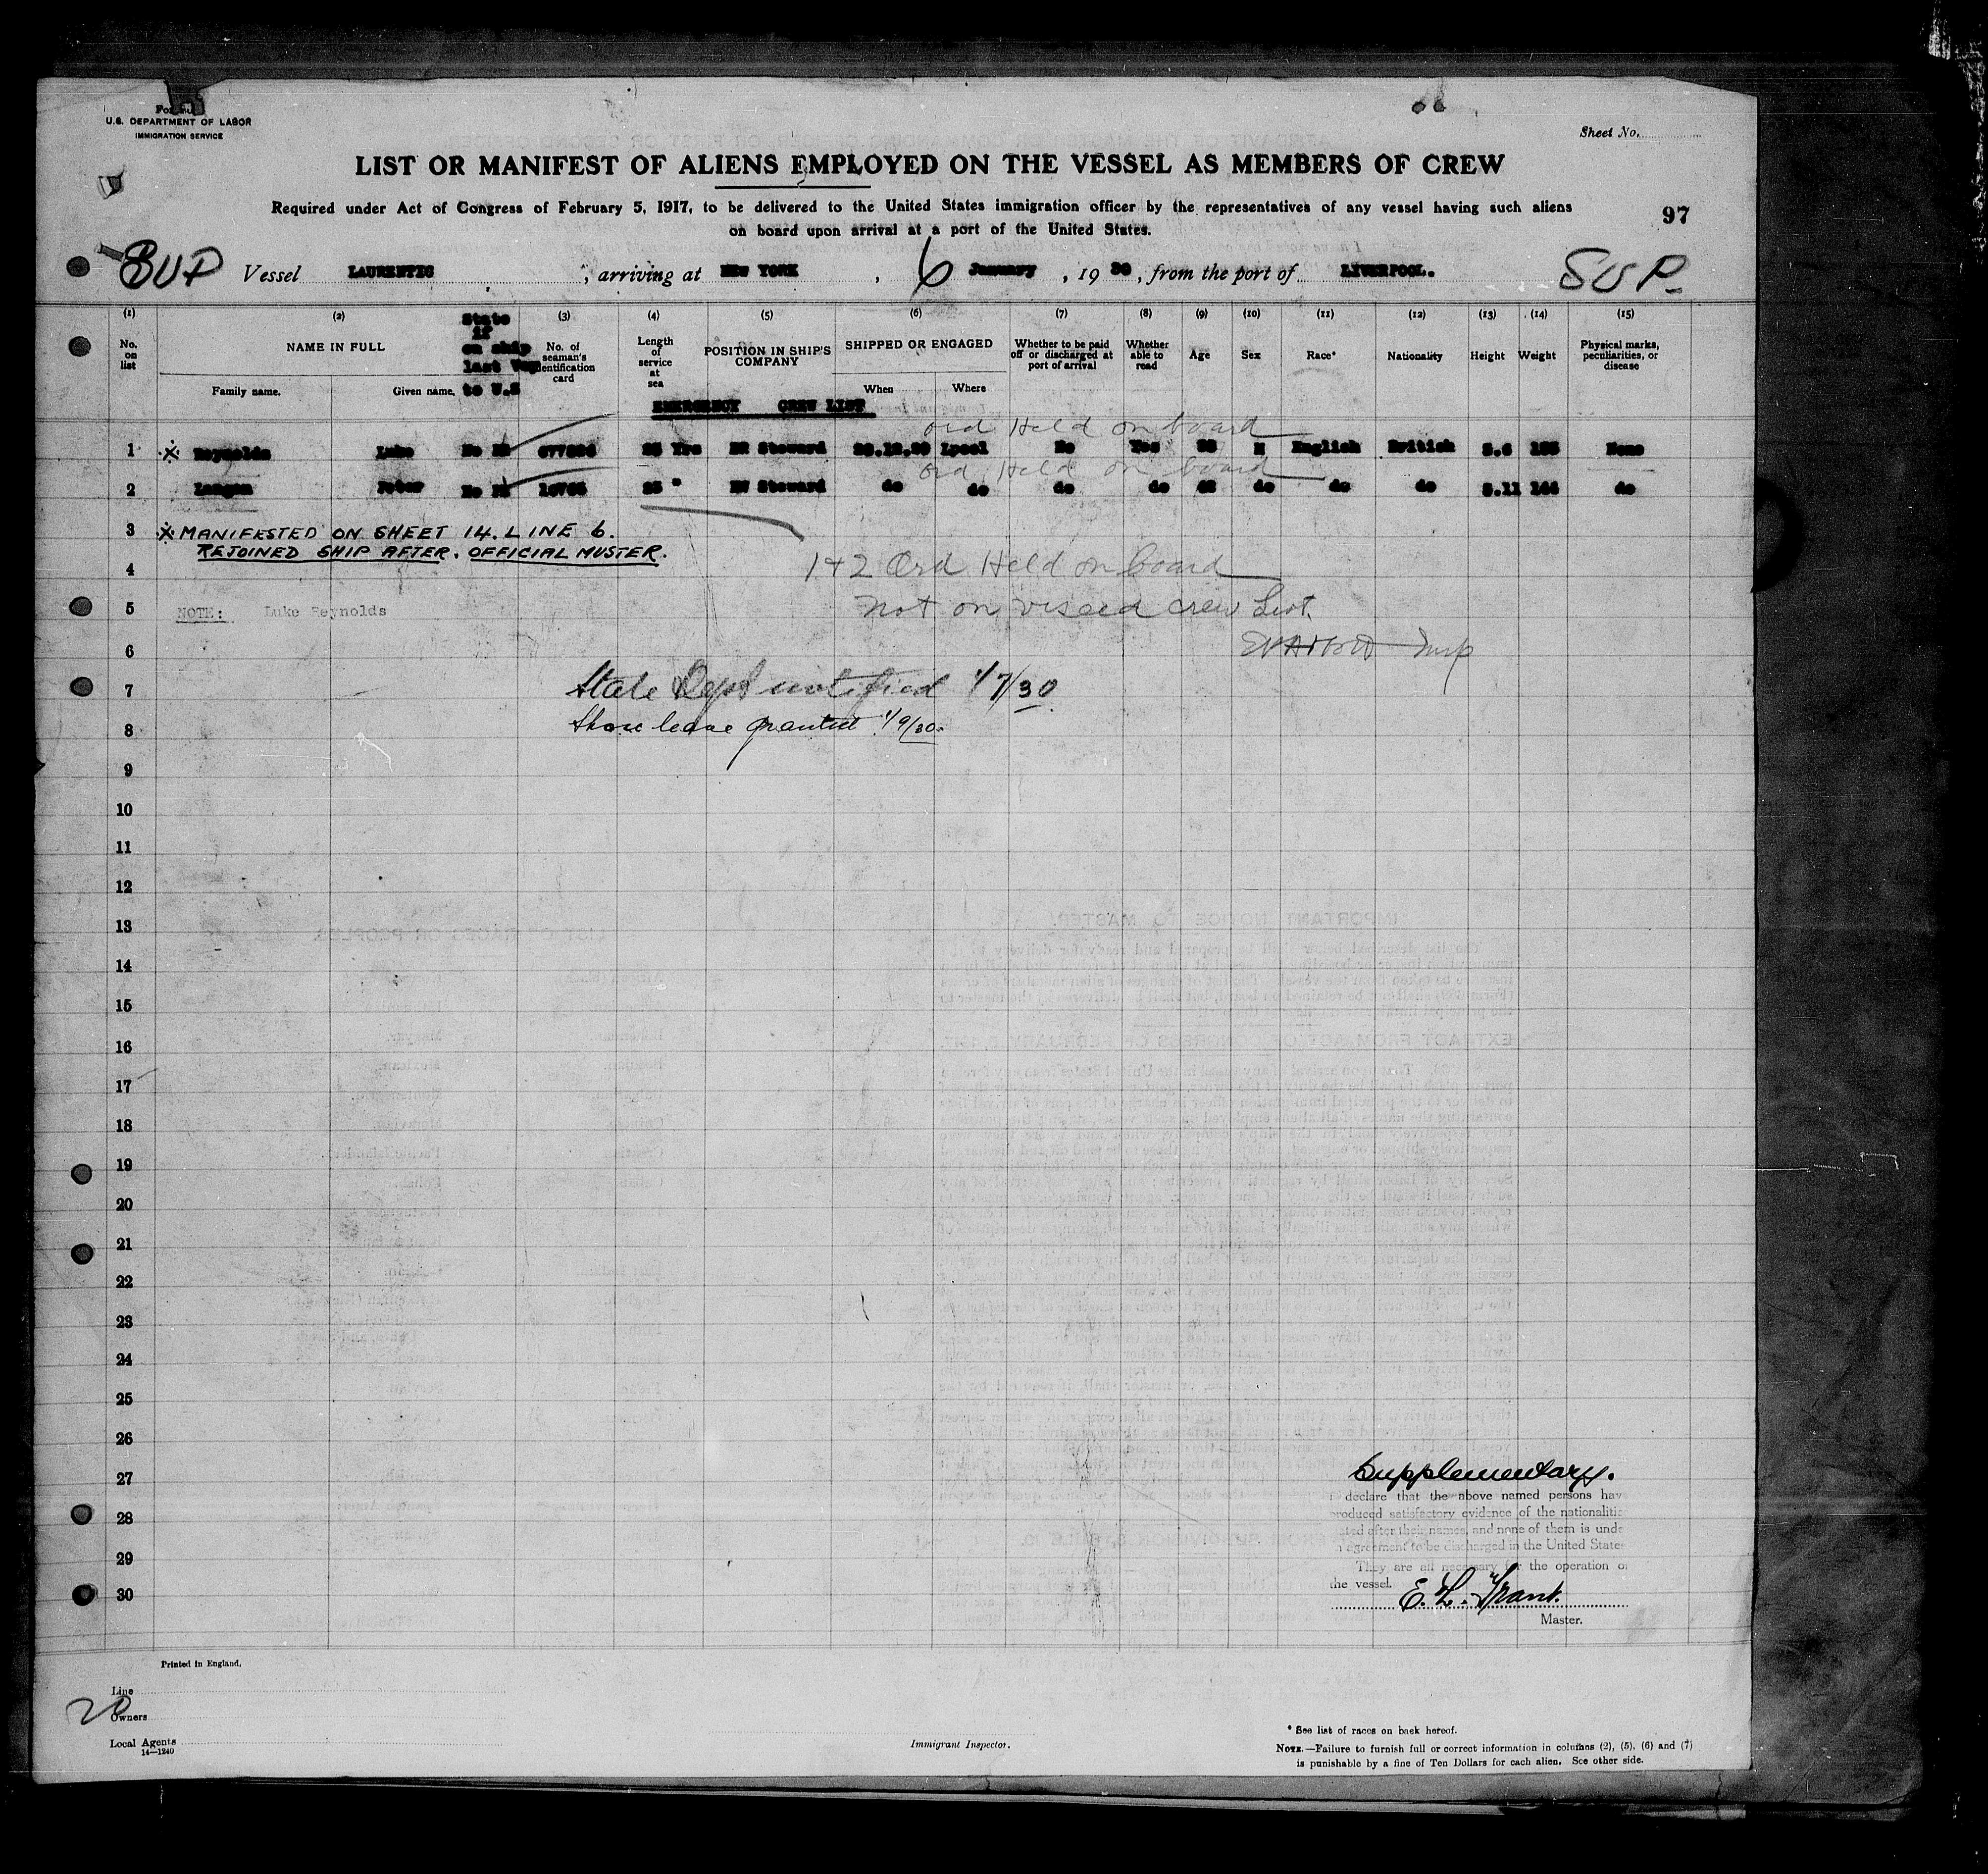 U.S. DEPARTMENT OF LABOR
IMMIGRATION SERVICE
Sheet No.
LIST OR MANIFEST OF ALIENS EMPLOYED ON THE VESSEL AS MEMBERS OF CREW
Required under Act of Congress of February 5, 1917, to be delivered to the United States immigration officer by the representatives of any vessel having such aliens
on board upon arrival at a port of the United States.
97
SUP Vessel LAURENTIC , arriving at NEW YORK , 6 January , 19 30 , from the port of LIVERPOOL. SUP.
(1) (2) (3) (4) (5) (6) (7) (8) (9) (10) (11) (12) (13) (14) (15)
No. on list
NAME IN FULL
Family name. Given name.
State if on ship last Voy to U.S
No. of seaman's identification card
Length of service at sea
POSITION IN SHIP'S COMPANY
SHIPPED OR ENGAGED
When Where
Whether to be paid off or discharged at port of arrival
Whether able to read
Age
Sex
Race*
Nationality
Height
Weight
Physical marks, peculiarities, or disease
EMERGENCY CREW LIST
Ord Held on board
1 Reynolds Luke No 25 Yrs Steward Lpool No Yes M English British 5.6 None
Ord Held on board
2 Peter No Steward do do do do do do do 5.11 do
3 MANIFESTED ON SHEET 14. LINE 6.
REJOINED SHIP AFTER. OFFICIAL MUSTER.
4 1+2 Ord Held on board
5 NOTE: Luke Reynolds not on visaed crew List.
6 Insp
7 State Dept notified 1/7/30
8 Shore leave granted 1/9/30
9
10
11
12
13
14
15
16
17
18
19
20
21
22
23
24
25
26
27
28
29
30
Supplementary.
I declare that the above named persons hav
produced satisfactory evidence of the nationalitie
ated after their names, and none of them is unde
n agreement to be discharged in the United State
They are all necessary for the operation o
the vessel.
E. L. Trant.
Master.
Printed in England.
Line
20
Owners
Local Agents
14—1240
Immigrant Inspector.
* See list of races on back hereof.
NOTE.—Failure to furnish full or correct information in columns (2), (5), (6) and (7)
is punishable by a fine of Ten Dollars for each alien. See other side.